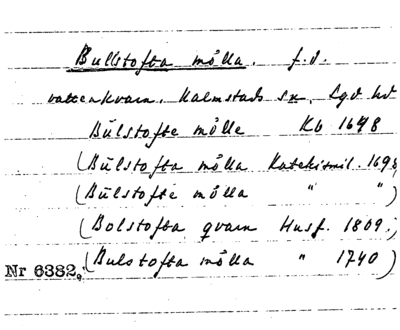 Bullstofta mölla. f.d.
vattenkvarn. Kalmstads sn, Lgd hd
Bülstofte mölle Kb 1648
(Bülstofta mölla Katekismil. 1698)
(Bülstofte mölla " ")
(Bolstofta qvarn Husf. 1809.)
Nr 6382. (Bulstofta mölla " 1740)